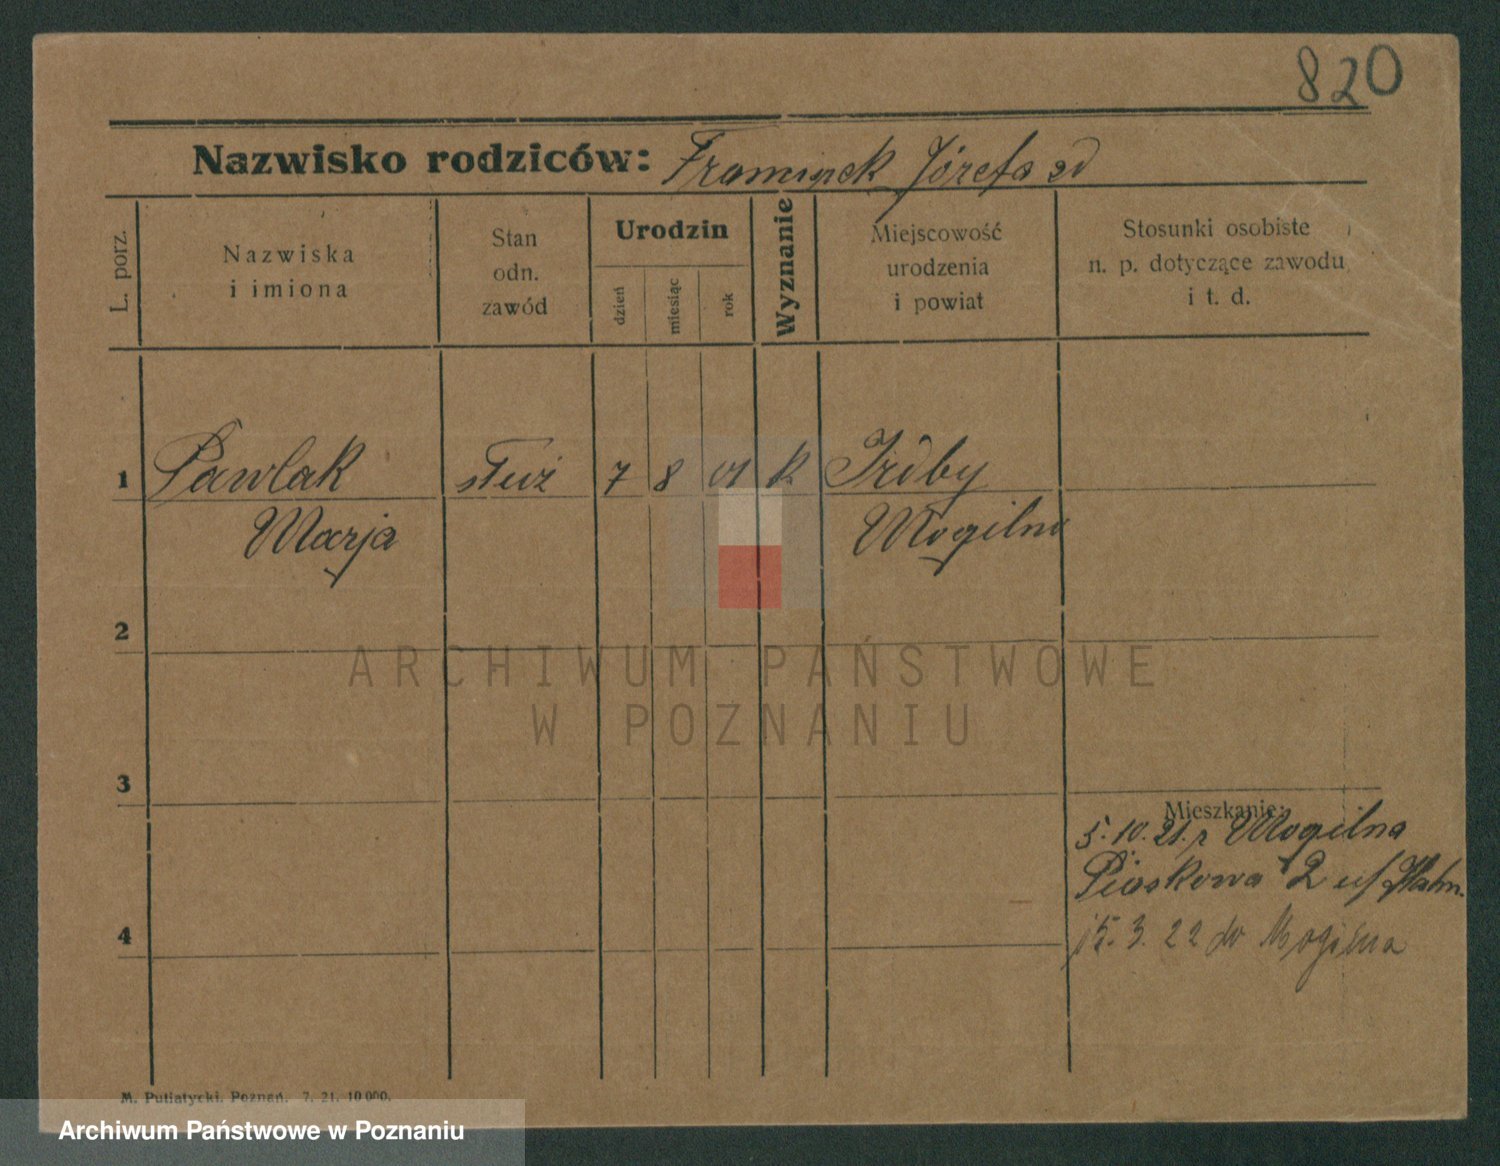 820
Nazwisko rodziców: Franciszek Józefa zd
L. porz.
Nazwiska
i imiona
Stan
odn.
zawód
Urodzin
dzień
miesiąc
rok
Wyznanie
Miejscowość
urodzenia
i powiat
Stosunki osobiste
n. p. dotyczące zawodu
i t. d.
1 Pawlak służ 7 8 01 k
Marja Mogilno
2
3
Mieszkanie:
5.10.21. z Mogilna
Piaskowa 2 u/
4
15.3.22 do Mogilna
M. Putiatycki, Poznań. 7. 21. 10 000.
ARCHIWUM PAŃSTWOWE
W POZNANIU
Archiwum Państwowe w Poznaniu